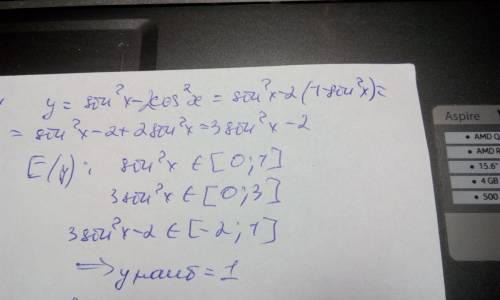 y = sin²x - 2cos²x = sin²x - 2(1 - sin²x) =
= sin²x - 2 + 2sin²x = 3sin²x - 2
E(y): sin²x ∈ [0; 1]
3sin²x ∈ [0; 3]
3sin²x - 2 ∈ [-2; 1]
⇒ y наиб = 1
Aspire
• AMD
• AMD
• 15.6"
• 4 GB
• 500